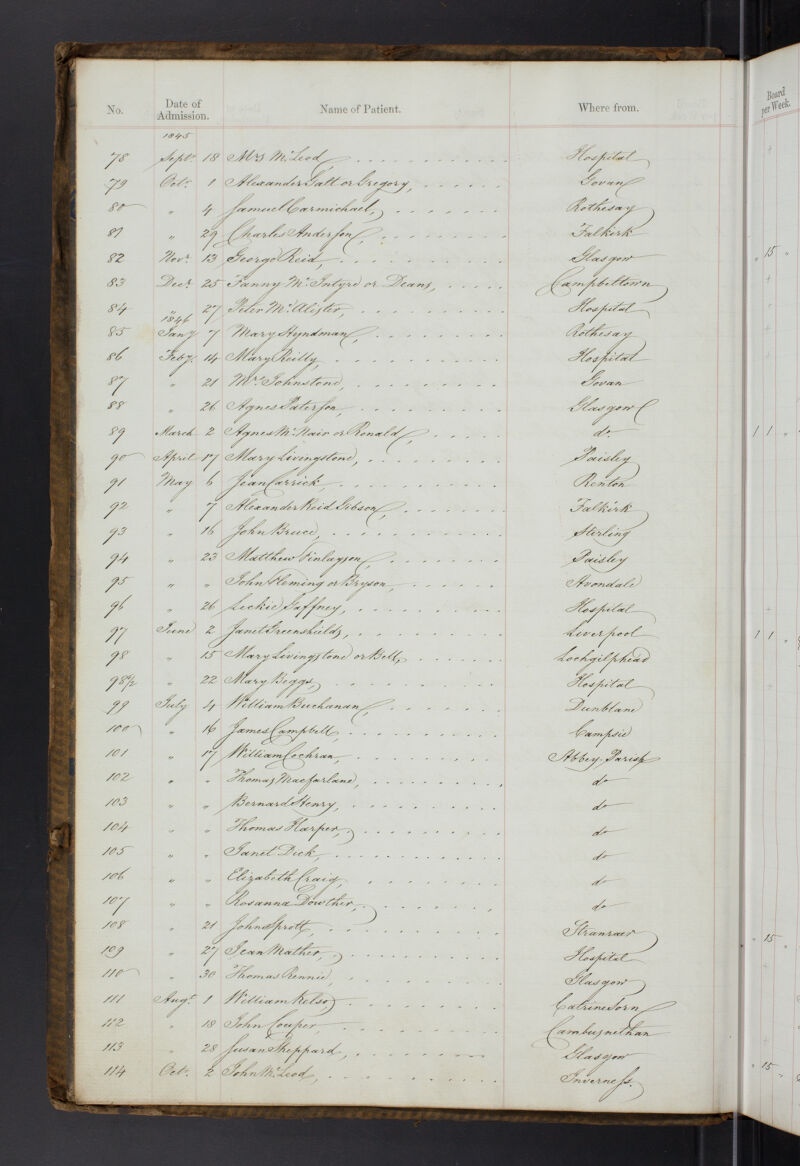 No. Date of Admission. Name of Patient. Where from.
Board per Week.
1845
78 Septr 18 Mrs McLeod Hospital
79 Octr 1 Alexander Galt or Gregory, Govan
80 " 4 Samuel Carmichael, Rothesay
81 " 29 Charles Anderson, Falkirk
82 Novr 13 George Reid, Glasgow " 15 "
83 Decr 25 Fanny McIntyre or Deans, Campbeltown
84 " 27 Peter McAlister, Hospital
1846
85 Jany 7 Mary Hyndman, Rothesay
86 Feby. 14 Mary Reilly Hospital
87 " 21 Mrs Johnstone, Govan
88 " 26 Agnes Paterson, Glasgow
89 March 2 Agnes McNair or Ronald, do. 1 1 "
90 April 17 Mary Livingstone, Paisley
91 May 6 Jean Carrick Renton
92 " 7 Alexander Reid Gibson, Falkirk
93 " 16 John Bruce, Stirling
94 " 23 Matthew Finlayson, Paisley
95 " " John Fleming or Bryson, Avondale
96 " 26 Leckie Gaffney, Hospital
97 June 2 Janet Greenshields, Liverpool 1 1 "
98 " 15 Mary Livingstone or Bell, Lochgilphead
98½ " 22 Mary Biggs, Hospital
99 July 4 William Buchanan, Dunblane
100 " 16 James Campbell, Campsie
101 " 17 William Cochran, Abbey Parish
102 " " Thomas Macfarlane, do
103 " " Bernard Henry, do
104 " " Thomas Harper, do
105 " " Janet Dick, do
106 " " Elizabeth Craig, do
107 " " Rosanna Dowther, do
108 " 21 John Sprott, Stranraer " 15 "
109 " 27 Jean Mather, Hospital
110 " 30 Thomas Rennie, Glasgow
111 Augt. 1 William Kelso, Catrine Sorn
112 " 18 John Couper, Cambusnethan
113 " 28 Susan Sheppard, Glasgow
114 Octr. 2 John McLeod, Inverness. " 15 "